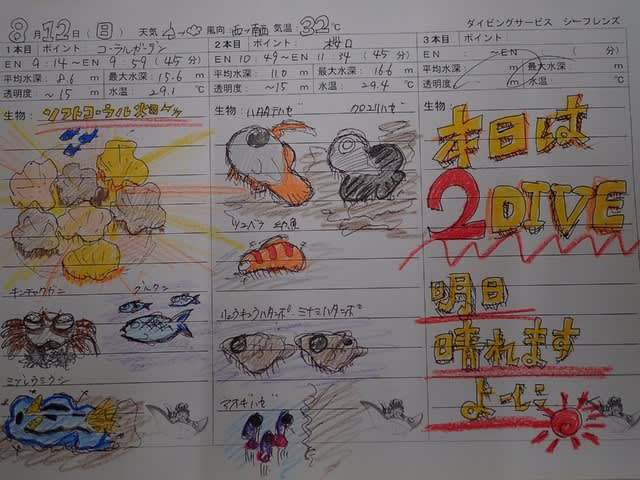 8月12日(日) 天気 風向 西→南西 気温:32℃ ダイビングサービス シーフレンズ
1本目 ポイント コーラルガーデン
EN 9:14～EN 9:59 (45分)
平均水深: 8.6 m 最大水深: 15.6 m
透明度: ～15 m 水温: 29.1 ℃
生物: ソフトコーラル
キンチャクガニ グルクン
2本目 ポイント: 桜口
EN 10:49～EN 11:34 (45分)
平均水深: 11.0 m 最大水深: 16.6 m
透明度: ～15 m 水温: 29.4 ℃
生物: ハタタテハゼ クロユリハゼ
ツユベラ 幼魚
リュウキュウハタンポ ミナミハタンポ
アオギハゼ
3本目 ポイント:
EN : ～EN : (分)
平均水深: m 最大水深: m
透明度: m 水温: ℃
生物:
本日は
2DIVE
明日
晴れます
よーに